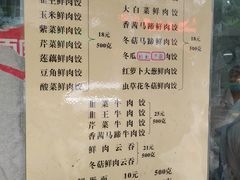 韭王鲜肉饺
玉米鲜肉饺
紫菜鲜肉饺
芹菜鲜肉饺
莲藕鲜肉饺
豆角鲜肉饺
酸菜鲜肉饺
18元
500克
大白菜鲜肉饺
香茜马蹄鲜肉饺
冬菇马蹄鲜肉饺
冬瓜
鲜肉饺
红萝卜大葱鲜肉饺
虫草花冬菇鲜肉饺
500克
韭菜牛肉饺
韭王牛肉饺
芹菜牛肉饺
香茜马蹄牛肉饺
25元
500克
鲜肉云吞
冬菇鲜肉云吞
21元
500克
10元
500克